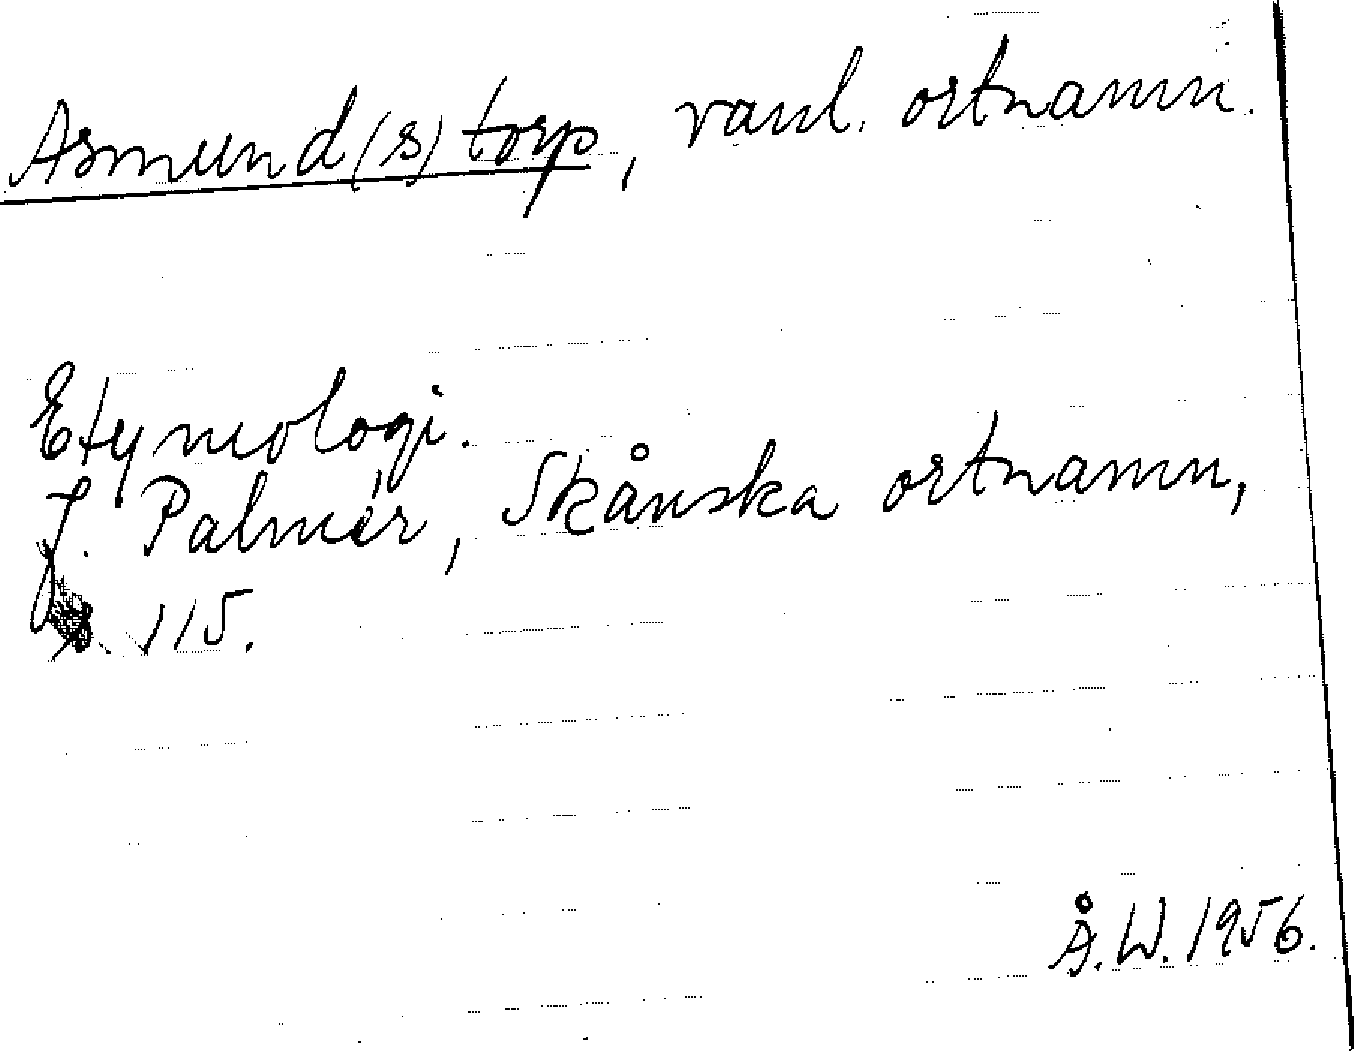 Asmund(s)torp, vanl. ortnamn.
Etymologi.
J. Palmér, Skånska ortnamn,
s. 115.
Å.W. 1956.